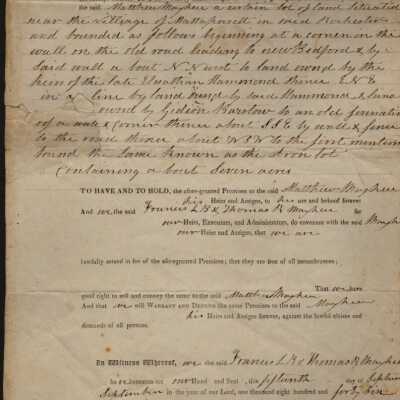 the said Matthew Mayhew a certain lot of land situated
near the village of Mattapoisett in said Rochester
and bounded as follows beginning at a corner on the
wall on the old road leading to new Bedford & by
said wall a bout N N west to land owned by the
heirs of the late Hammond thence E N E
in a line by land owned by said Hammond & land
owned by Gideon Barstow to an old
corner thence about S S E by wall & fence
to the road thence about W S W to the first mention
bound the same known as the lot
Containing a bout seven acres
TO HAVE AND TO HOLD, the afore-granted Premises to the said Matthew Mayhew
his Heirs and Assigns, to his use and behoof forever
And we, the said Francis L B & Thomas R Mayhew for
our Heirs, Executors, and Administrators, do covenant with the said Mayhew
our Heirs and Assigns, that we are
lawfully seized in fee of the afore-granted Premises; that they are free of all incumbrances;
That we have
good right to sell and convey the same to the said Matthew Mayhew
And that we will WARRANT AND DEFEND the same Premises to the said Mayhew
his Heirs and Assigns forever, against the lawful claims and
demands of all persons.
In Witness Whereof, we the said Francis L B & Thomas R Mayhew
have hereunto set our Hand and Seal, this fifteenth day of
September in the year of our Lord, one thousand eight hundred and forty